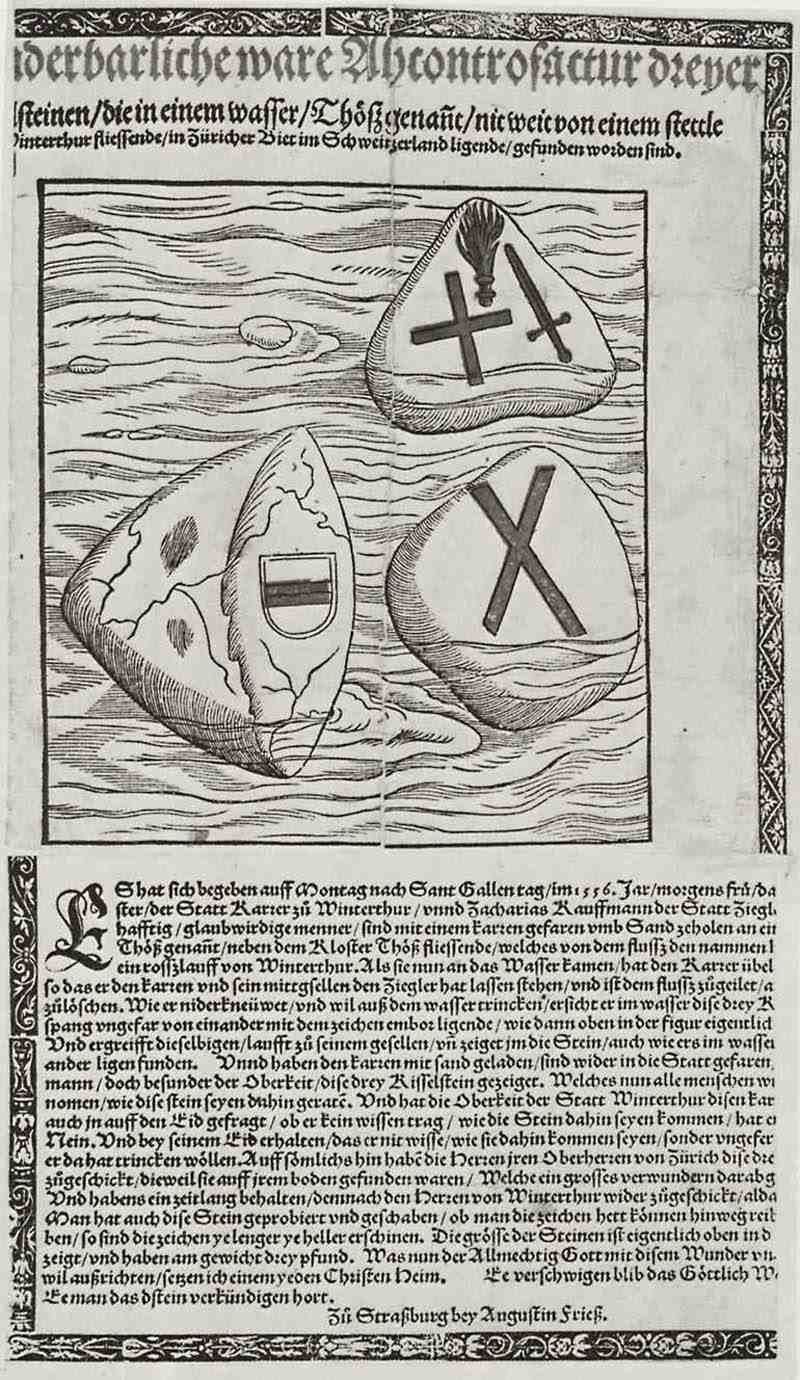 derbarliche ware Abcontrofactur dreyer
steinen/die in einem wasser/Thöß genañt/nit weit von einem stettle
interthur fliessende/in Züricher Biet im Schweitzerland ligende/gefunden worden sind.
ES hat sich begeben auff Montag nach Sant Gallen tag/im 1556. Jar/morgens frü/da
ster/der Statt Karrer zů Winterthur/vnnd Zacharias Kauffmann der Statt Ziegl
hafftig/glaubwirdige menner/sind mit einem karren gefaren vmb Sand zeholen an ein
Thöß genañt/neben dem Kloster Thöß fliessende/welches von dem flussz den nammen
ein rosszlauff von Winterthur. Als sie nun an das Wasser kamen/hat den Karrer übel
so das er den karren vnd sein mittgsellen den Ziegler hat lassen stehen/vnd ist dem flussz zůgeilet/a
zůlöschen. Wie er niderkneüwet/vnd wil auß dem wasser trincken/ersicht er im wasser dise drey K
spang vngefar von einander mit dem zeichen embor ligende/wie dann oben in der figur eigentlich
Vnd ergreifft dieselbigen/laufft zů seinem gesellen/vñ zeiget jm die Stein/auch wie ers im wasser
ander ligen funden. Vnnd haben den karren mit sand geladen/sind wider in die Statt gefaren,
mann/doch besunder der Oberkeit/dise drey Kisselstein gezeiget. Welches nun alle menschen wu
nomen/wie dise stein seyen dahin geratẽ. Vnd hat die Oberkeit der Statt Winterthur disen kar
auch jn auff den Eid gefragt/ob er kein wissen trag/wie die Stein dahin seyen kommen/hat er
Nein. Vnd bey seinem Eid erhalten/das er nit wisse/wie sie dahin kommen seyen/sonder vngefer
er da hat trincken wöllen. Auff sömlichs hin habẽ die Herren jren Oberherren von Zürich dise dre
zůgeschickt/dieweil sie auff jrem boden gefunden waren/Welche ein grosses verwundern darab g
Vnd habens ein zeitlang behalten/demnach den Herren von Winterthur wider zůgeschickt/alda
Man hat auch dise Stein geprobiert vnd geschaben/ob man die zeichen hett können hinweg reib
ben/so sind die zeichen ye lenger ye heller erschinen. Die grösse der Steinen ist eigentlich oben in d
zeigt/vnd haben am gewicht drey pfund. Was nun der Allmechtig Gott mit disem Wunder vn
wil außrichten/setzen ich einem yeden Christen heim. Ee verschwigen blib das Göttlich W
Ee man das dstein verkündigen hort.
Zů Straßburg bey Augustin Frieß.